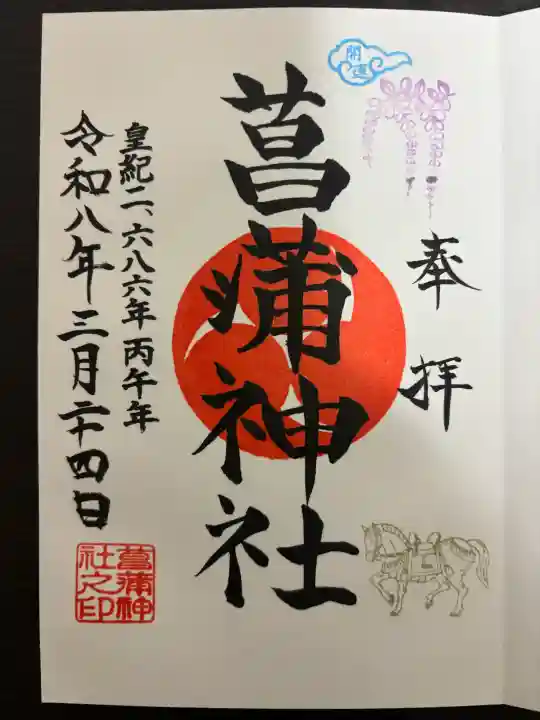 開運
奉拝
菖蒲神社
皇紀二、六八六年丙午年
令和八年三月二十四日
菖蒲神
社之印